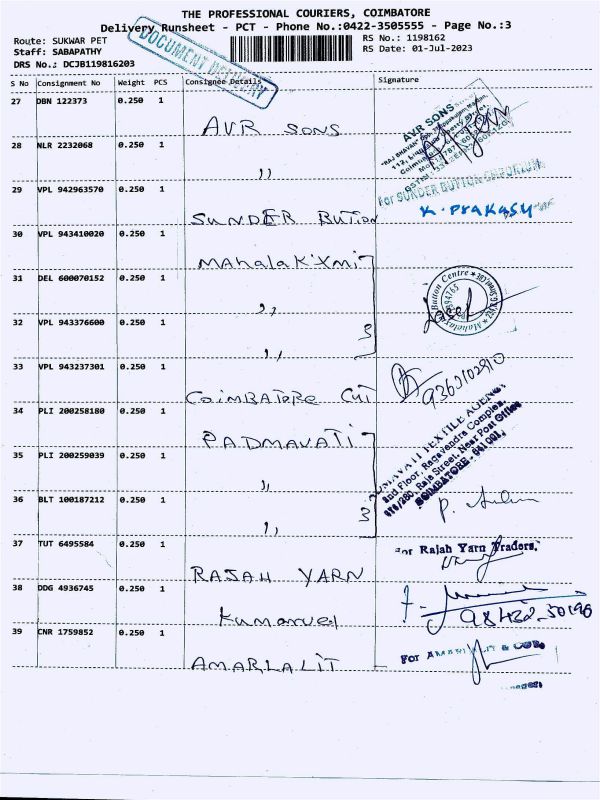 THE PROFESSIONAL COURIERS, COIMBATORE
Delivery Runsheet - PCT - Phone No.:0422-3505555 - Page No.:3
DOCUMENT DELIVERY
Route: SUKWAR PET
RS No.: 1198162
Staff: SABAPATHY
RS Date: 01-Jul-2023
DRS No.: DCJB119816203
S No Consignment No Weight PCS Consignee Details Signature
27 DBN 122373 0.250 1
AVR SONS
AVR SONS
28 NLR 2232068 0.250 1
,,
29 VPL 942963570 0.250 1
For SUNDER BUTTON EMPORIUM
SUNDER BUTION
K. PraKasH
30 VPL 943410020 0.250 1
MahalaKxmi
31 DEL 600070152 0.250 1
,,
Button Centre
32 VPL 943376600 0.250 1
3
,,
33 VPL 943237301 0.250 1
COIMBATORE CUT
34 PLI 200258180 0.250 1
PADMAVATI
TEXTILE AGENCY
2nd Floor, Ragavendra Complex,
Raja Street, Near Post Office
COIMBATORE - 641 001.
35 PLI 200259039 0.250 1
,,
36 BLT 100187212 0.250 1
3
,,
37 TUT 6495584 0.250 1
For Rajah Yarn Traders,
RAJAH YARN
38 DDG 4936745 0.250 1
Kumarvel
39 CNR 1759852 0.250 1
For
AMARLALIT